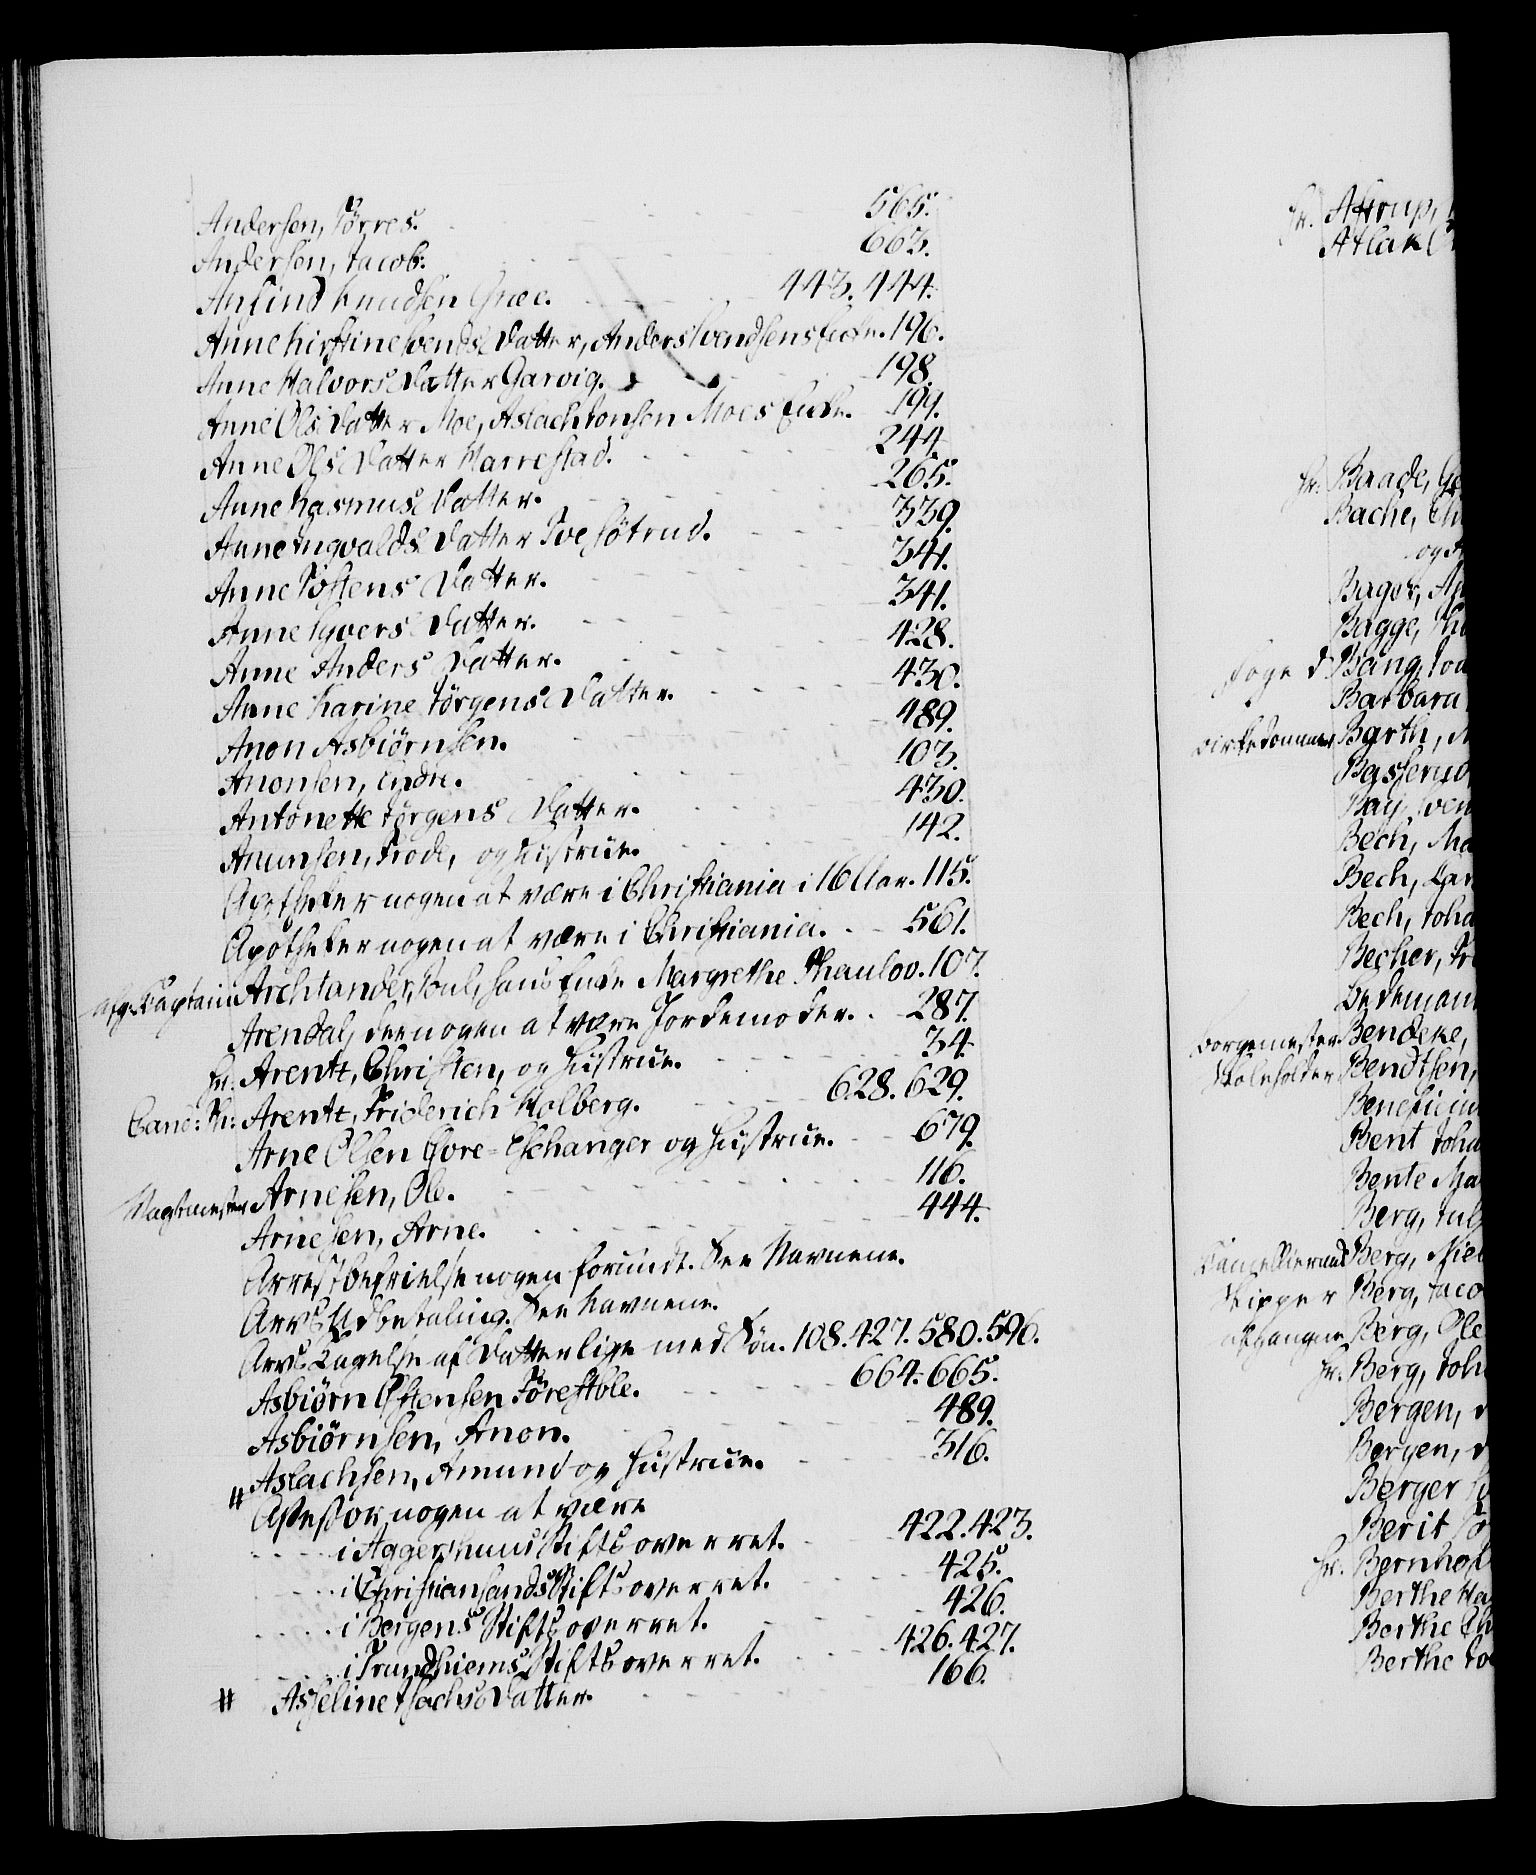 Andersen, Tørres. 565.
Andersen, Jacob. 663.
Anfind Knudsen Græe. 443. 444.
Anne Kirstine Svends Datter, Anders Svendsens Enke. 196.
Anne Halvors Datter Garvig. 198.
Anne Ols Datter Moe, Aslach Jonsen Moes Enke. 199.
Anne Ols Datter Harrestad. 244.
Anne Rasmus Datter. 265.
Anne Ingvalds Datter Tvesøtrud. 339.
Anne Tostens Datter. 341.
Anne Sivers Datter. 341.
Anne Anders Datter. 428.
Anne Karine Jørgens Datter. 430.
Anon Asbiørnsen. 489.
Anonsen, Endre. 103.
Antonette Jørgens Datter. 430.
Anunsen, Frode, og Hustrue. 142.
Apotheker nogen at være i Christiania i 16 Aar. 115.
Apotheker nogen at være i Christiania. 561.
afg. Kaptain Archtander, Poul, hans Enke Margrethe Thaulov. 107.
Arendal, der nogen at være Jordemoder. 287.
Hr. Arentz, Christen, og Hustrue. 34.
Canc: R: Arentz, Friderich Holberg. 628. 629.
Arne Olsen Øvre-Eschanger og Hustrue. 679.
Vagtmester Arnesen, Ole. 116.
Arnesen, Arne. 444.
Arrestbefrielse nogen forundt. See Navnene.
Arvs Udbetaling. See Navnene.
Arvs Tagelse af Datter lige med Søn. 108. 427. 580. 596.
Asbiørn Østensen Førestøle. 664. 665.
Asbiørnsen, Anon. 489.
Aslachsen, Amund og Hustrue. 316.
# Assessor nogen at være
i Aggershuus Stiftsoverret. 422. 423.
i Christiansands Stiftsoverret. 425.
i Bergens Stiftsoverret. 426.
i Trundhiems Stiftsoverret. 426. 427.
# Asseline Isachs Datter. 166.
Hr. Astrup,
Atlak
Hr. Baade,
Bache,
og
Bager,
Bagge,
Foged Bang,
Barbara
Birkedommer Barth,
Basserud
Bay, Sven
Bech,
Bech,
Bech, Joha
Becher,
Bedeman
Borgemester Bendeke,
Bendtsen,
Beneficiu
Bent Joha
Bente Ma
Berg,
Cancellieraad Berg, Niel
Skipper Berg, Jaco
afgangne Berg, Ole
Hr. Berg, Joh
Bergen,
Bergen,
Berger
Berit
Hr. Bernhof
Berthe
Berthe
Berthe